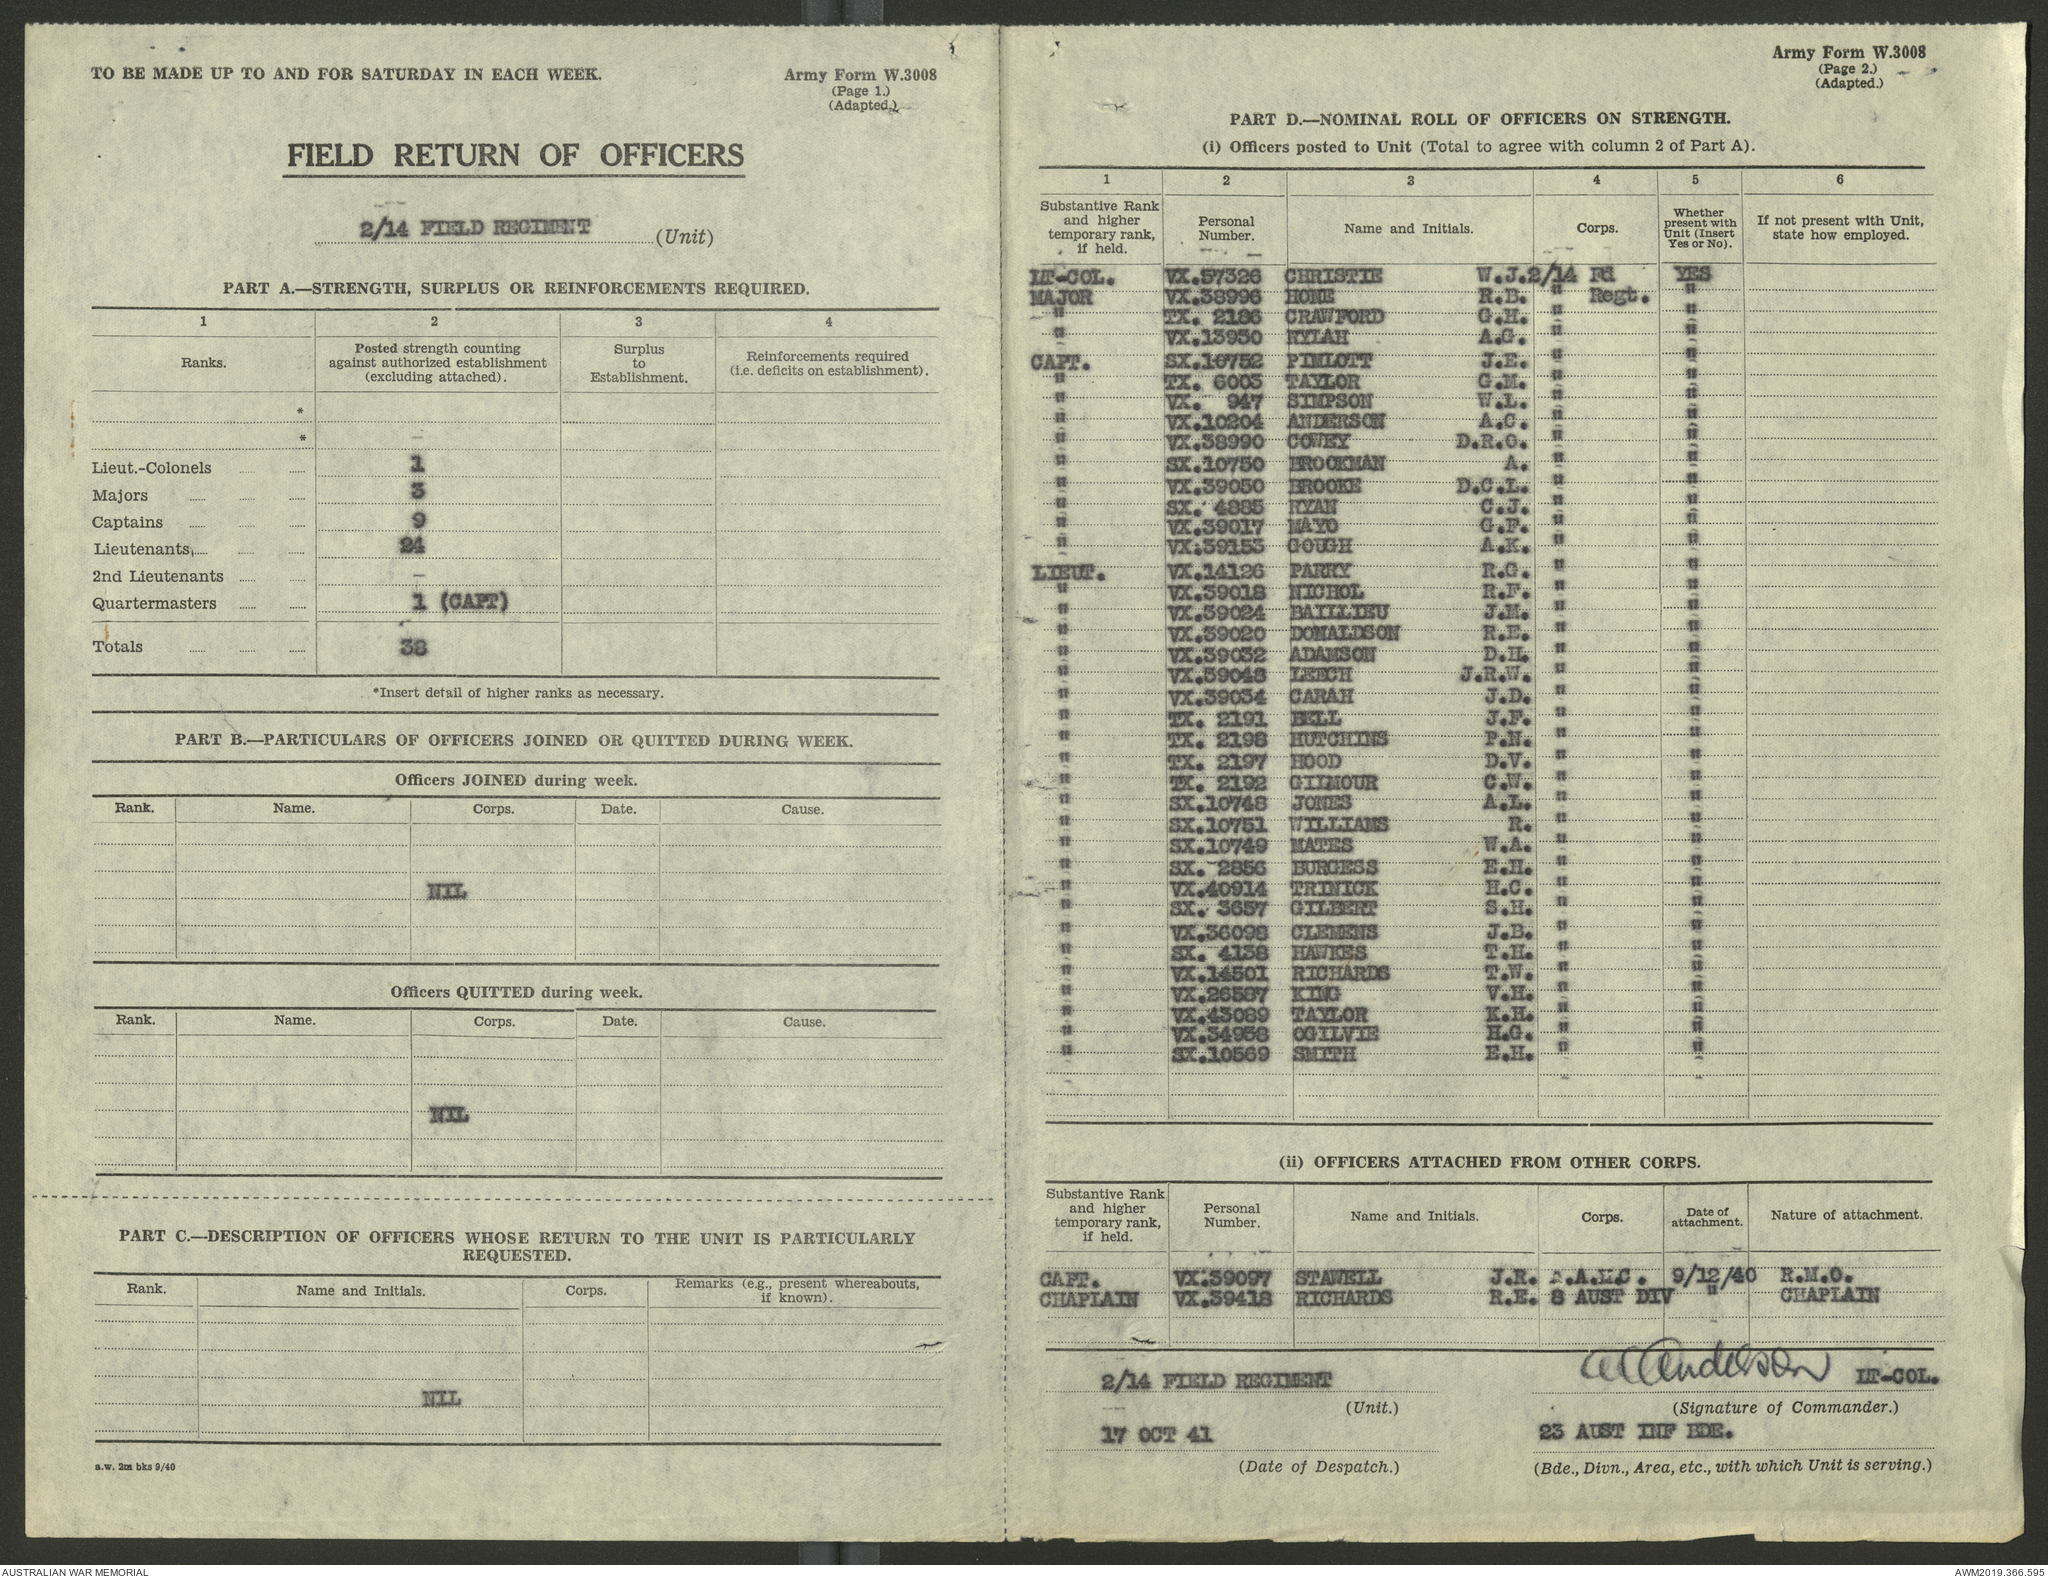 TO BE MADE UP TO AND FOR SATURDAY IN EACH WEEK.
Army Form W.3008
(Page 1.)
(Adapted.)
FIELD RETURN OF OFFICERS
2/14 FIELD REGIMENT (Unit)
PART A.—STRENGTH, SURPLUS OR REINFORCEMENTS REQUIRED.
1 2 3 4
Ranks. Posted strength counting against authorized establishment (excluding attached). Surplus to Establishment. Reinforcements required (i.e. deficits on establishment).
*
* –
Lieut.-Colonels 1
Majors 3
Captains 9
Lieutenants 24
2nd Lieutenants –
Quartermasters 1 (CAPT)
Totals 38
*Insert detail of higher ranks as necessary.
PART B.—PARTICULARS OF OFFICERS JOINED OR QUITTED DURING WEEK.
Officers JOINED during week.
Rank. Name. Corps. Date. Cause.
NIL
Officers QUITTED during week.
Rank. Name. Corps. Date. Cause.
NIL
PART C.—DESCRIPTION OF OFFICERS WHOSE RETURN TO THE UNIT IS PARTICULARLY
REQUESTED.
Rank. Name and Initials. Corps. Remarks (e.g., present whereabouts, if known).
NIL
a.w. 2m bks 9/40
Army Form W.3008
(Page 2.)
(Adapted.)
PART D.—NOMINAL ROLL OF OFFICERS ON STRENGTH.
(i) Officers posted to Unit (Total to agree with column 2 of Part A).
1 2 3 4 5 6
Substantive Rank and higher temporary rank, if held. Personal Number. Name and Initials. Corps. Whether present with Unit (Insert Yes or No). If not present with Unit, state how employed.
LT-COL. VX.57326 CHRISTIE W.J. 2/14 Fd YES
MAJOR VX.38996 HONE R.B. " Regt. "
" TX. 2186 CRAWFORD G.H. " "
" VX.13930 HYLAH A.G. " "
CAPT. SX.10752 PIMLOTT J.E. " "
" TX. 6003 TAYLOR G.M. " "
" VX. 947 SIMPSON W.L. " "
" VX.10204 ANDERSON A.C. " "
" VX.38990 COWEY D.R.C. " "
" SX.10750 BROOKMAN A. " "
" VX.39050 BROOKE D.C.L. " "
" SX. 4885 RYAN C.J. " "
" VX.39017 MAYO G.F. " "
" VX.39153 GOUGH A.K. " "
LIEUT. VX.14126 PARRY R.G. " "
" VX.39018 NICHOL R.F. " "
" VX.39024 BAILLIEU J.M. " "
" VX.39020 DONALDSON R.E. " "
" VX.39032 ADAMSON D.H. " "
" VX.39048 LEECH J.R.W. " "
" VX.39034 CARAH J.D. " "
" TX. 2191 BELL J.F. " "
" TX. 2198 HUTCHINS P.N. " "
" TX. 2197 HOOD D.V. " "
" TX. 2192 GILMOUR C.W. " "
" SX.10748 JONES A.L. " "
" SX.10751 WILLIAMS R. " "
" SX.10749 MATES W.A. " "
" SX. 2856 BURGESS E.H. " "
" VX.40914 TRINICK H.C. " "
" SX. 3657 GILBERT S.H. " "
" VX.36098 CLEMENS J.B. " "
" SX. 4138 HAWKES T.H. " "
" VX.14501 RICHARDS T.W. " "
" VX.26587 KING V.H. " "
" VX.43089 TAYLOR K.H. " "
" VX.34958 OGILVIE H.G. " "
" SX.10569 SMITH E.H. " "
(ii) OFFICERS ATTACHED FROM OTHER CORPS.
Substantive Rank and higher temporary rank, if held. Personal Number. Name and Initials. Corps. Date of attachment. Nature of attachment.
CAPT. VX.39097 STAWELL J.R. A.A.M.C. 9/12/40 R.M.O.
CHAPLAIN VX.39418 RICHARDS R.E. 8 AUST DIV " CHAPLAIN
2/14 FIELD REGIMENT
(Unit.)
17 OCT 41
(Date of Despatch.)
Anderson LT-COL.
(Signature of Commander.)
23 AUST INF BDE.
(Bde., Divn., Area, etc., with which Unit is serving.)
AUSTRALIAN WAR MEMORIAL
AWM2019.366.595